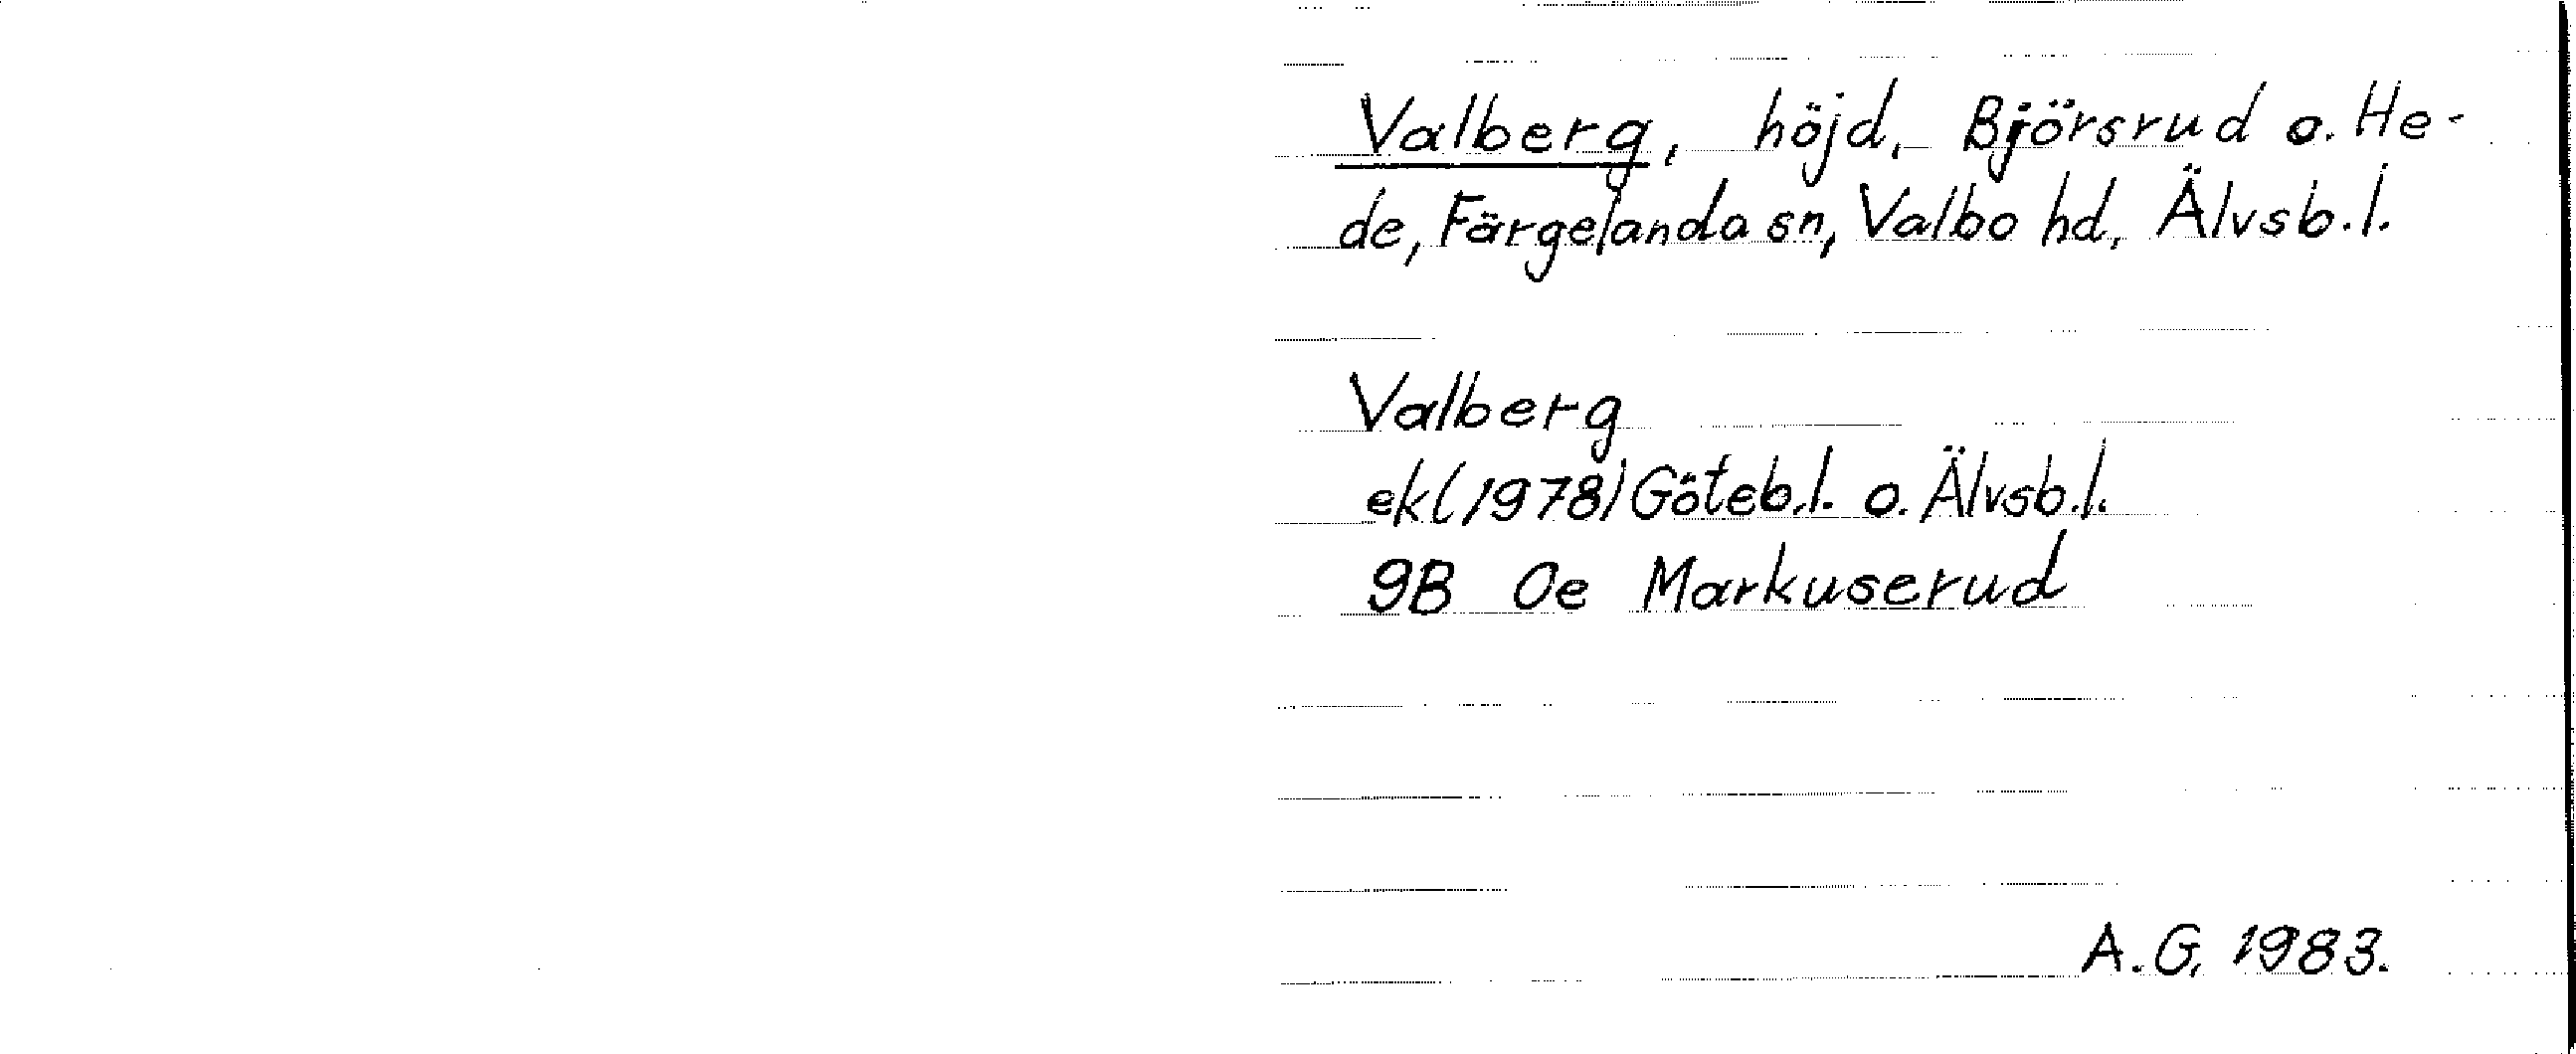 Valberg, höjd, Björsrud o. He-
de, Färgelanda sn, Valbo hd, Älvsb.l.
Valberg
ek(1978) Göteb.l. o. Älvsb.l.
9B 0e Markuserud
A.G. 1983.